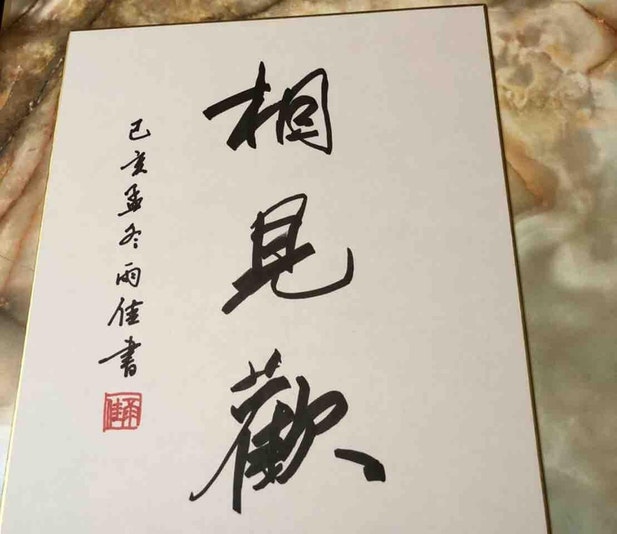 相見歡
己亥孟冬雨佳書
雨佳